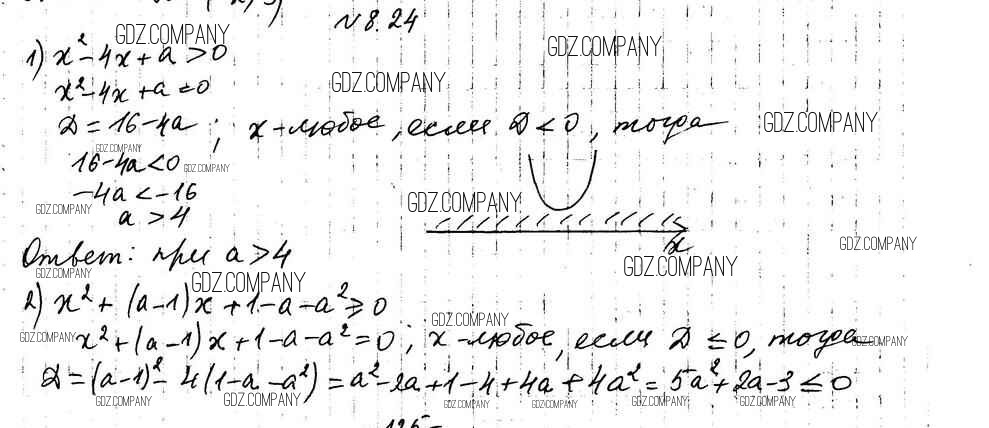 N 8.24
GDZ.COMPANY
1) x² - 4x + a > 0
GDZ.COMPANY
x² - 4x + a = 0
GDZ.COMPANY
D = 16 - 4a ; x - любое, если D < 0, тогда
GDZ.COMPANY
GDZ.COMPANY
16 - 4a < 0
GDZ.COMPANY
-4a < -16
GDZ.COMPANY
GDZ.COMPANY
a > 4
x
GDZ.COMPANY
Ответ: при a > 4
GDZ.COMPANY
GDZ.COMPANY
GDZ.COMPANY
2) x² + (a-1)x + 1 - a - a² ≥ 0
GDZ.COMPANY
GDZ.COMPANY
x² + (a-1)x + 1 - a - a² = 0 ; x - любое, если D ≤ 0, тогда
GDZ.COMPANY
D = (a-1)² - 4(1 - a - a²) = a² - 2a + 1 - 4 + 4a + 4a² = 5a² + 2a - 3 ≤ 0
GDZ.COMPANY
GDZ.COMPANY
GDZ.COMPANY
GDZ.COMPANY
GDZ.COMPANY
GDZ.COMPANY